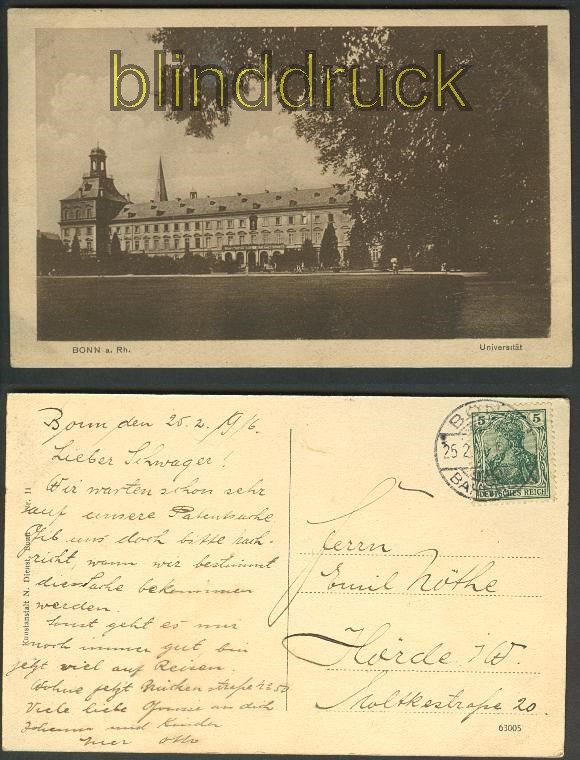 blinddruck
BONN a. Rh.
Universität
Bonn den 25.2.1916.
Lieber Schwager!
Wir warten schon sehr
auf unsere Patentsache
Gib uns doch bitte nach-
richt, wann wir bestimmt
die Sache bekommen
werden.
Sonst geht es mir
noch immer gut, bin
jetzt viel auf Reisen.
Wohne jetzt
Viele liebe Grüsse an dich
Johanna und Kinder
Otto
Kunstanstalt N. Dienst, Bonn Nr. 11
BONN
25 2
5 5
DEUTSCHES REICH
Herrn
Emil Nöthe
Hörde i/W.
Moltkestraße 20.
63005